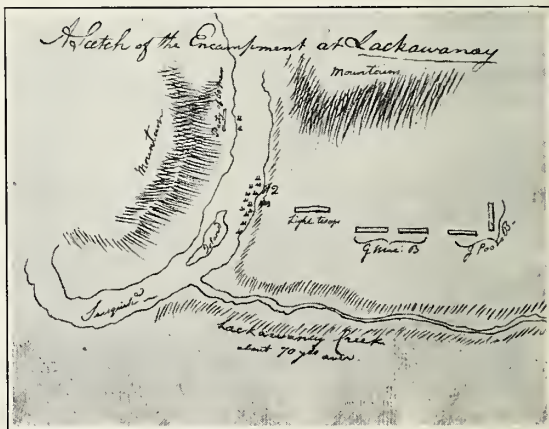 A Scetch of the Encampment at Lackawanay
Mountain
Mountain
Party of
42
Light troops
G Mic: B
G Poor B-
Island
Susquiha
Lackawaney Creek
about 70 yds over.